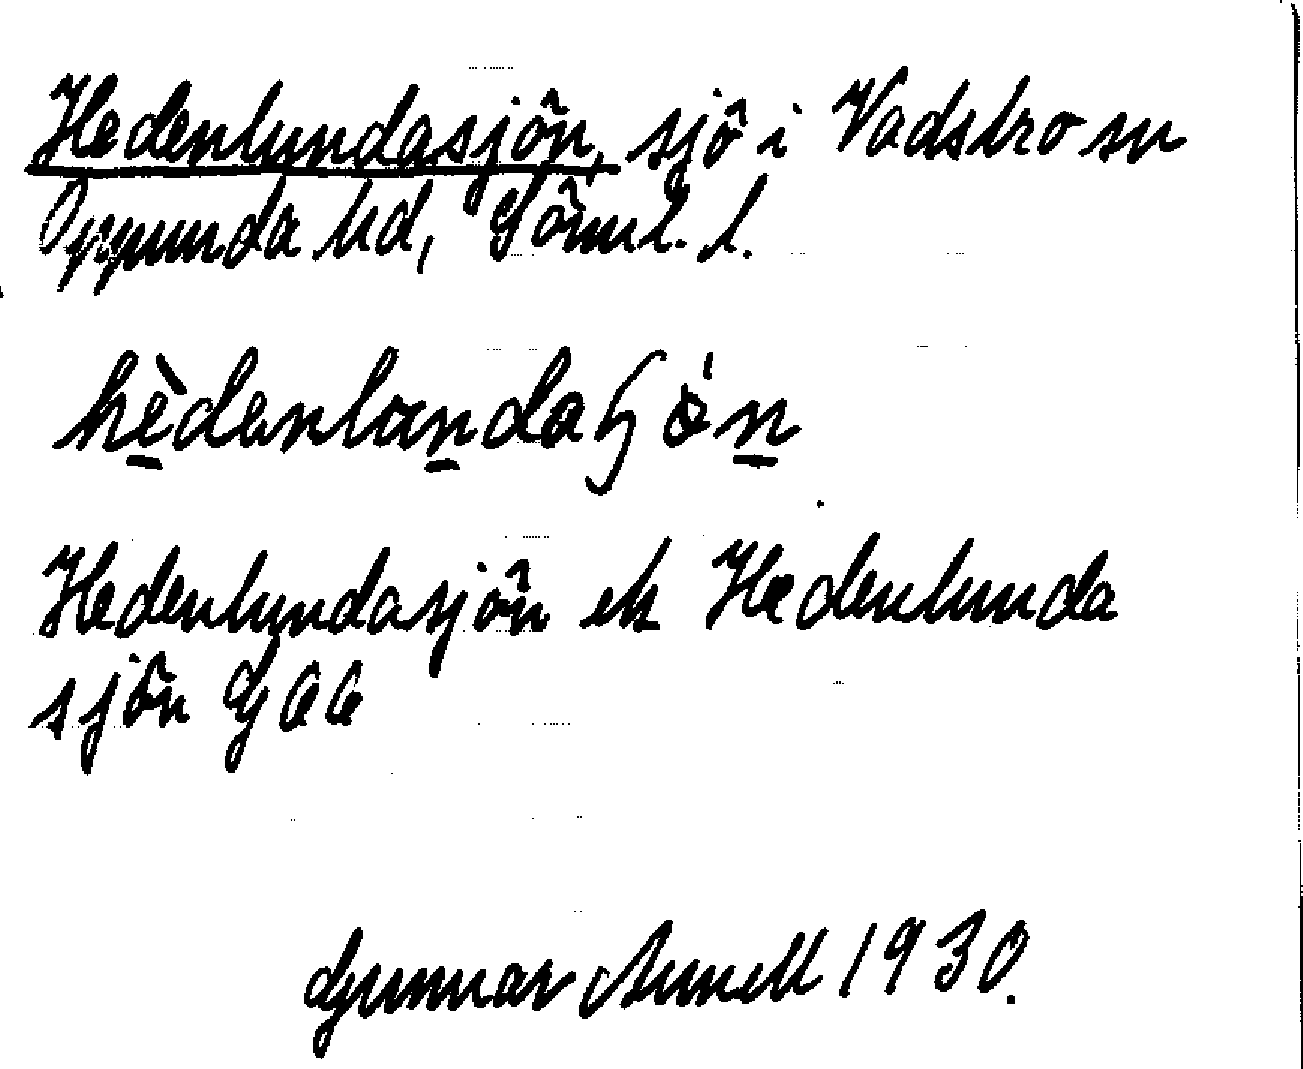 Hedenlundasjön, sjö i Vadsbro sn
Oppunda hd, Söml. l.
hèdenlundaɧön
Hedenlundasjön ek Hedenlunda
sjön G66
Gunnar Arnell 1930.